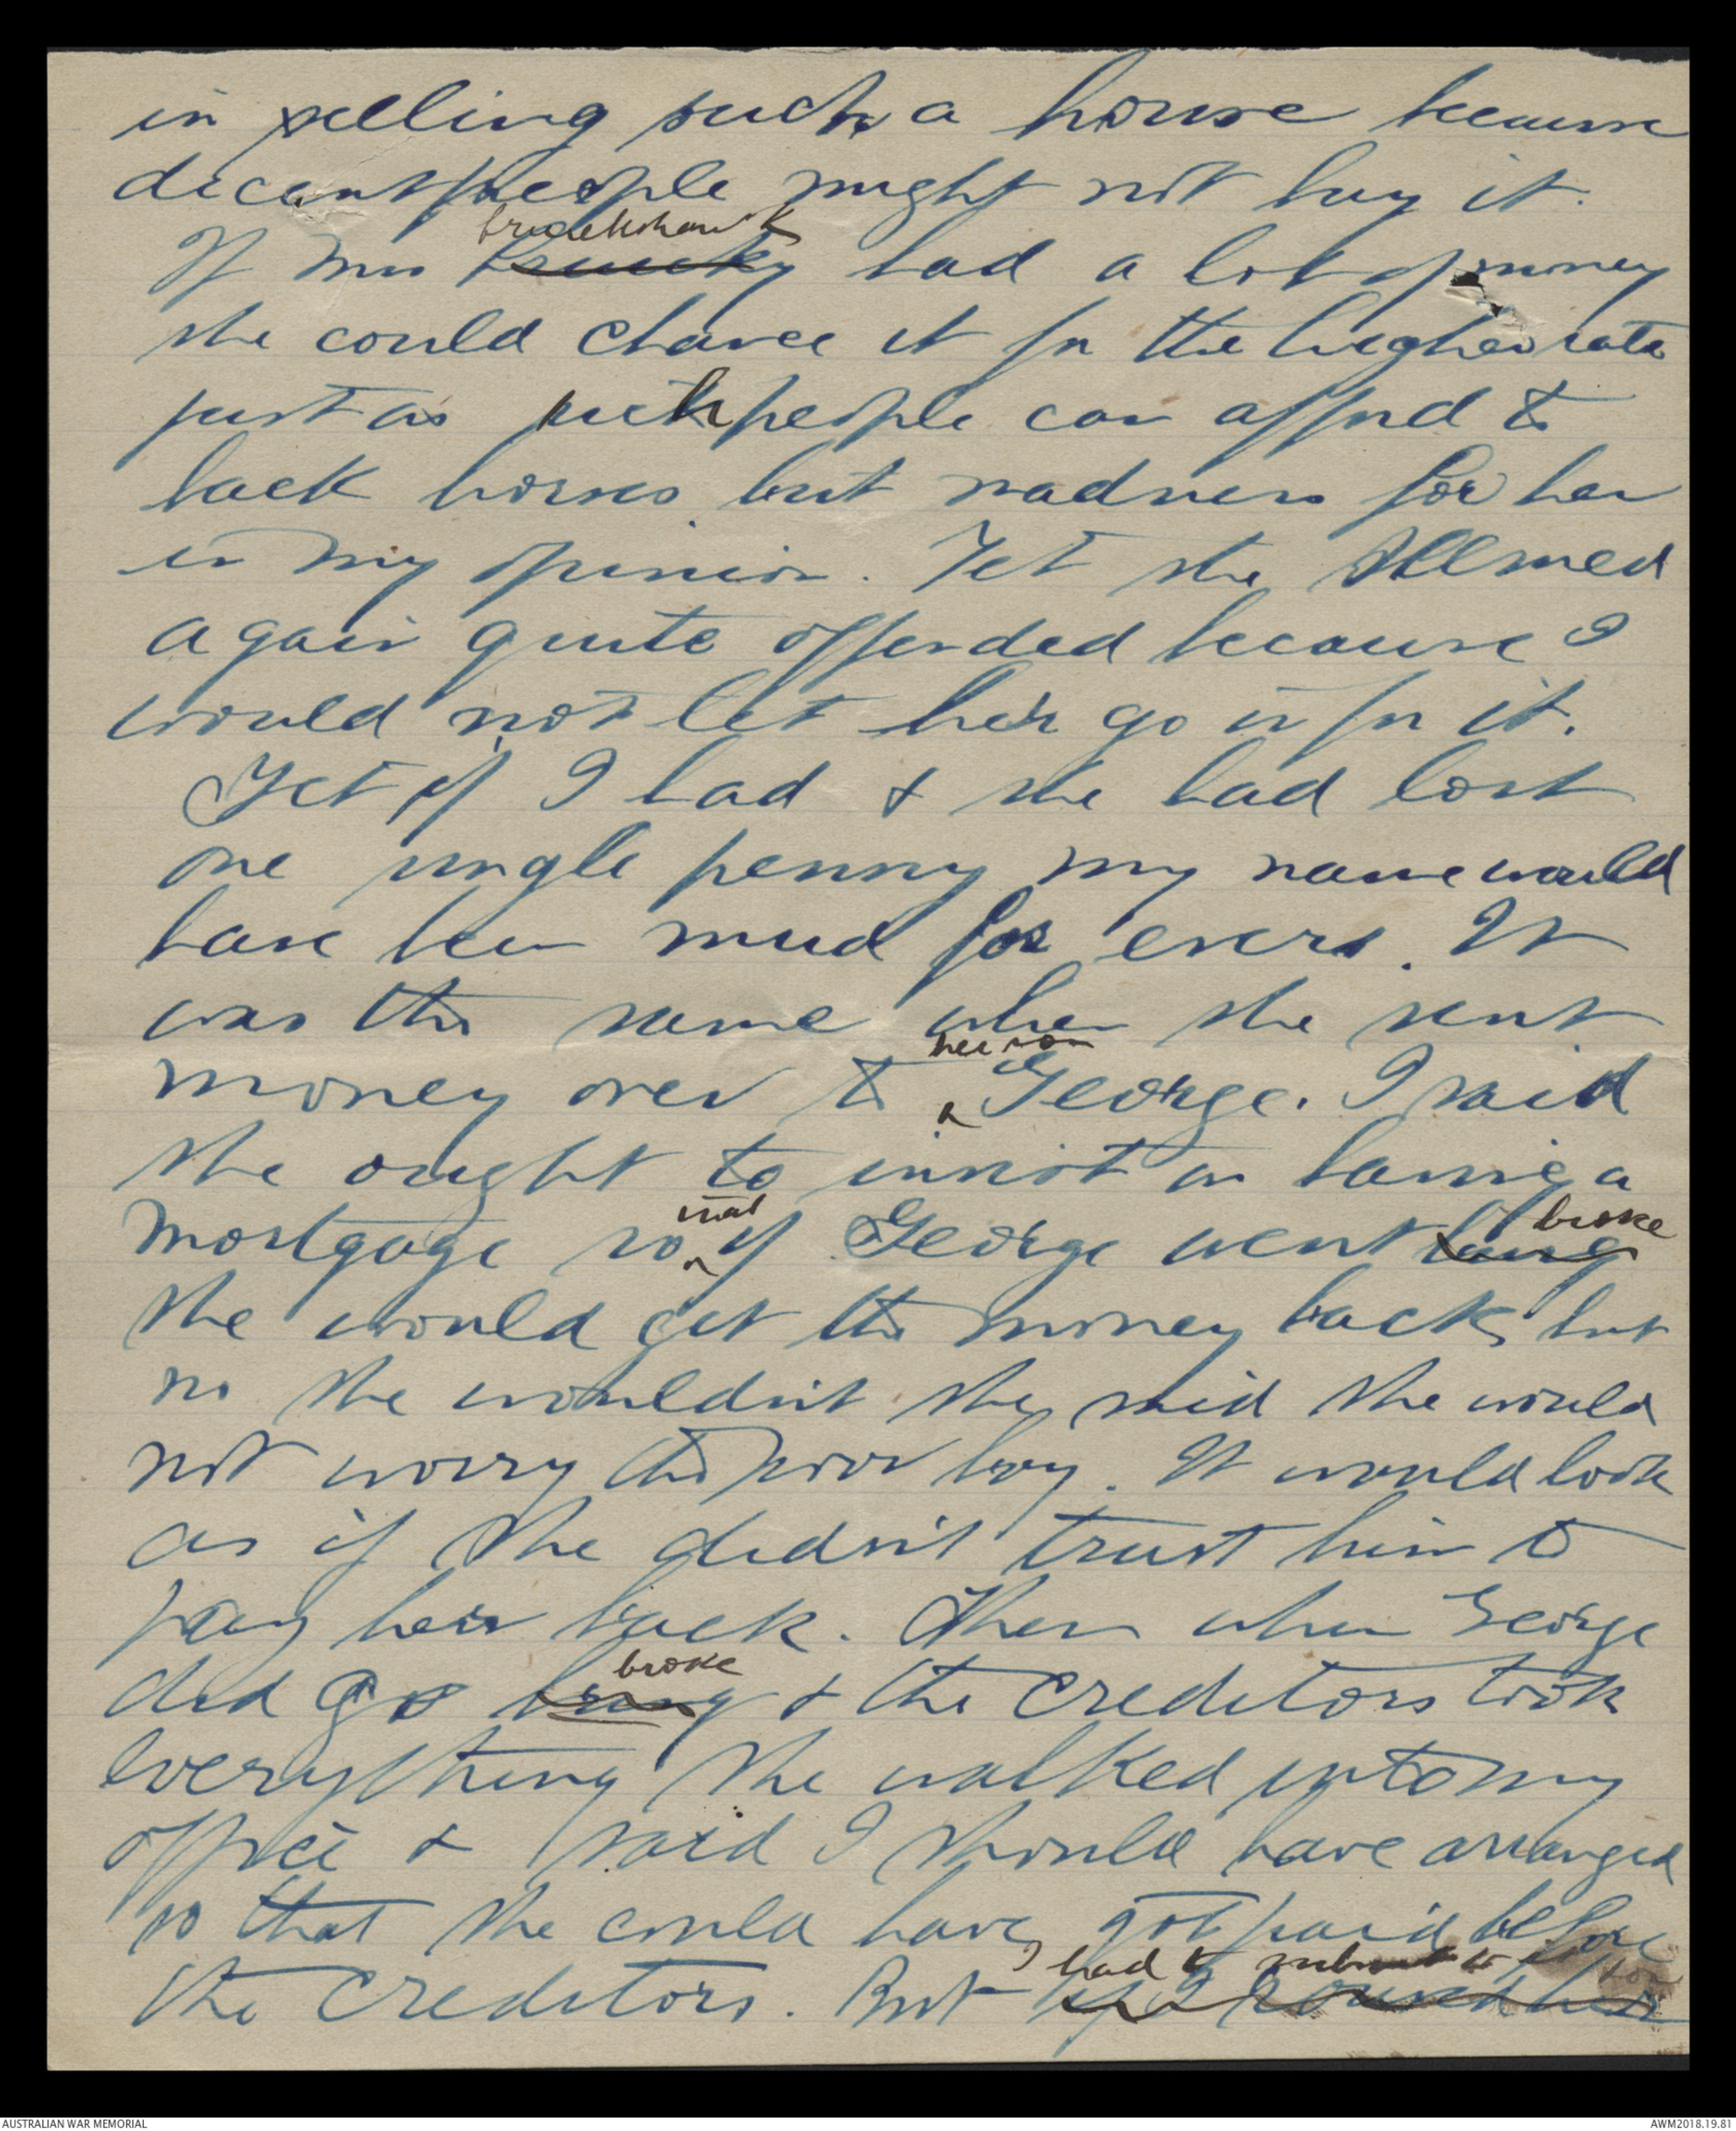 in selling such a house because
decent people might not buy it.
If Mrs had a lot of money
she could chance it for the higher rate
just as rich people can afford to
back horses but madness for her
in my opinion. Yet she seemed
again quite offended because I
would not let her go in for it.
Yet if I had & she had lost
one single penny my name would
have been mud for ever. It
was the same when she sent
her son
money over to George. I said
she ought to insist on having a
that broke
mortgage so if George went bung
she would get the money back but
no she wouldn't she said she would
not worry the poor boy. It would look
as if she didn't trust him to
pay her back. Then when George
broke
did go bung & the creditors took
everything she walked into my
office & said I should have arranged
so that she could have got paid before
I had to submit to
the creditors. But if I
AUSTRALIAN WAR MEMORIAL AWM2018.19.81